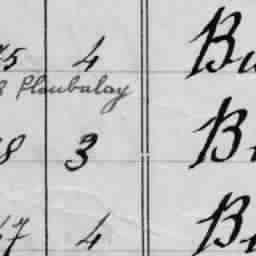 75 4 Bu
8 Ploubalay
8 3 B
47 4 B